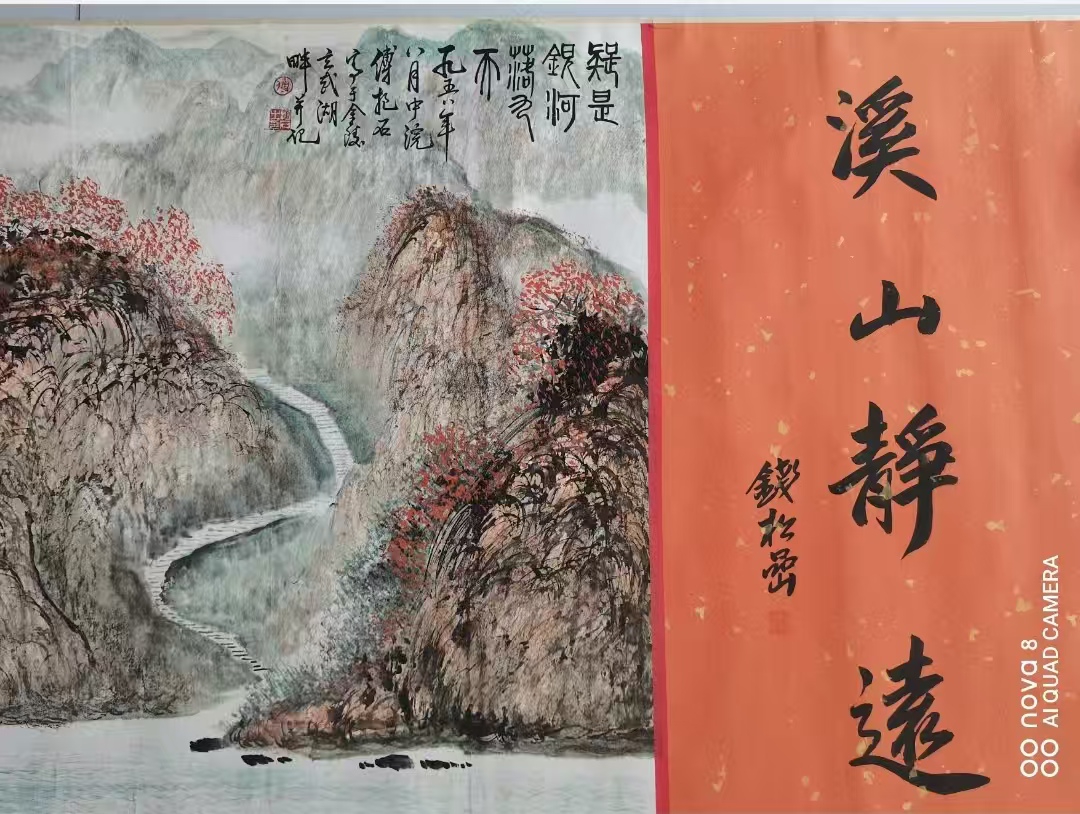 溪山靜遠
錢松嵒
疑是
銀河
落九
天
一九五八年
八月中浣
傅抱石
写于金陵
玄武湖
畔并记
nova 8
AI QUAD CAMERA